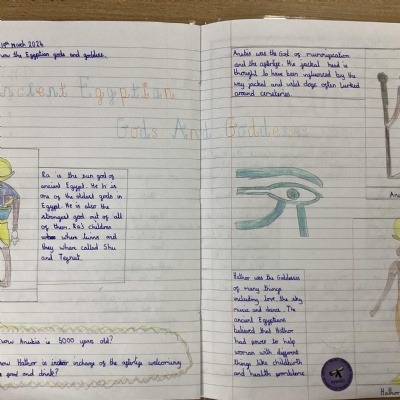 19th March 2024
know the Egyptian gods and goddess.
Ancient Egyptian
Gods And Goddesses
Ra is the sun god of
ancient Egypt. He is
one of the oldest gods in
Egypt. He is also the
strongest god out of all
of them. Ra's children
where twins and
they where called Shu
and Tefnut.
know Anubis is 5000 years old?
know Hathor is incharge of the afterlife welcoming
food and drink?
Anubis was the God of mummification
and the afterlife. His jackal head is
thought to have been influenced by the
way jackal and wild dogs often lurked
around cemeteries.
Hathor was the Goddess
of many things
including love the sky
music and dance. The
ancient Egyptians
believed that Hathor
had power to help
women with different
things like childbirth
and health problems
Hathor